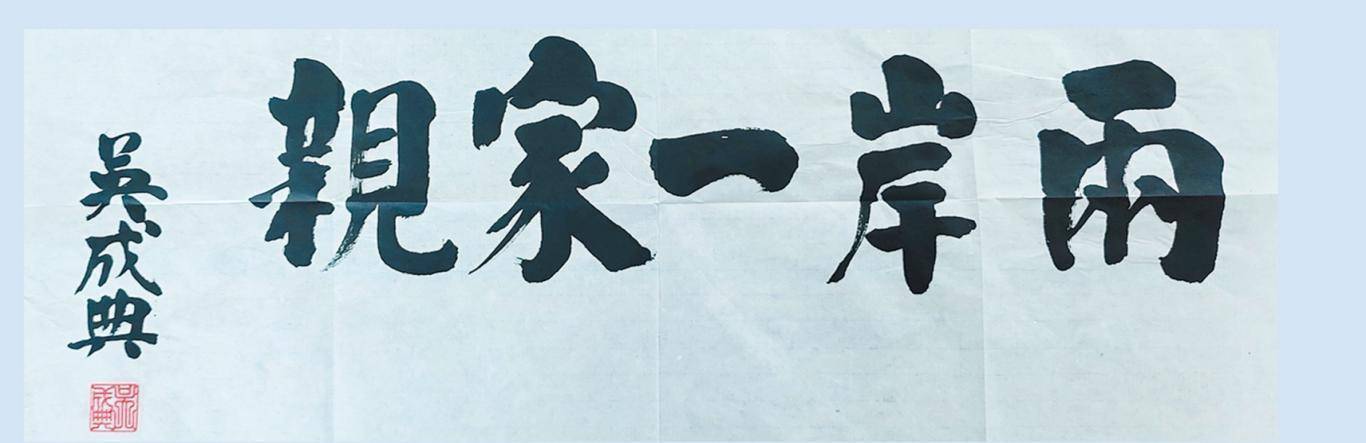 兩岸一家親
吳成典
吳成典